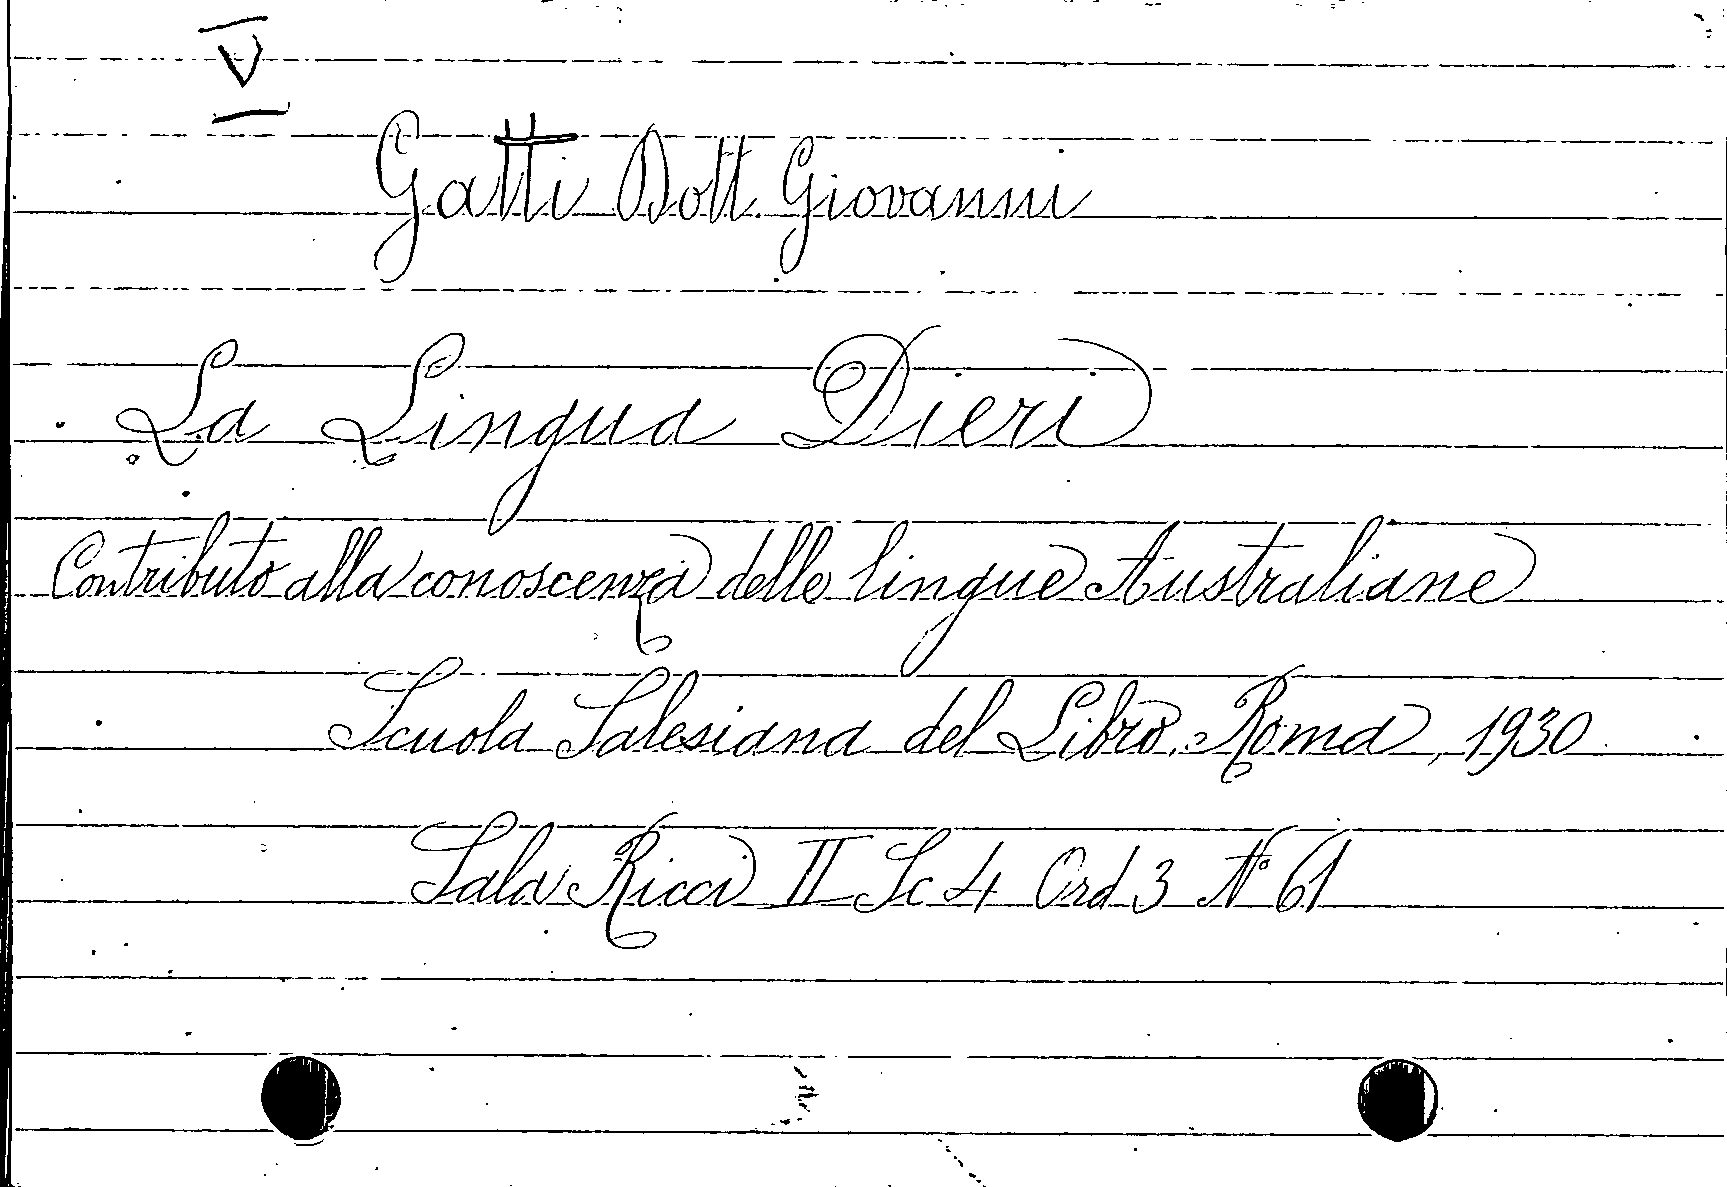 V
Gatti Dott. Giovanni
La Lingua Dieri
Contributo alla conoscenza delle lingue Australiane
Scuola Salesiana del Libro, Roma, 1930
Sala Ricci II Sc 4 Ord 3 N° 61